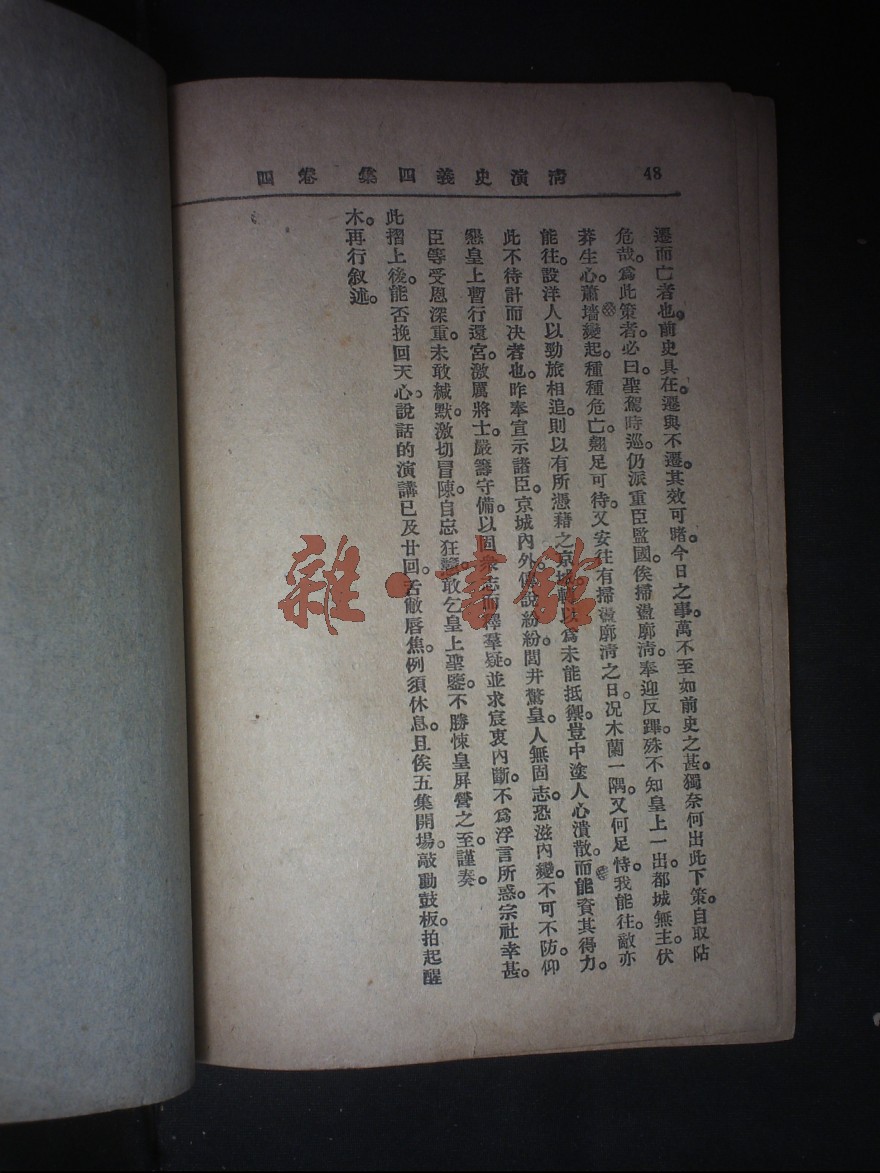 清演史義四集 卷四 48
遷而亡者也。前史具在。遷與不遷。其效可睹。今日之事。萬不至如前史之甚。獨奈何出此下策。自取阽
危哉。爲此策者。必曰聖駕時巡。仍派重臣監國。俟掃盪廓清。奉迎反蹕。殊不知皇上一出。都城無主。伏
莽生心。蕭墻變起。種種危亡。翹足可待。又安往有掃盪廓清之日。况木蘭一隅。又何足恃。我能往。敵亦
能往。設洋人以勁旅相追。則以有所憑藉之京城。轉以爲未能抵禦。豈中塗人心潰散。而能資其得力。
此不待計而决者也。昨奉宣示諸臣。京城內外。傳說紛紛。閭井驚皇。人無固志。恐滋內變。不可不防。仰
懇皇上暫行還宮。激厲將士。嚴籌守備。以固衆志而釋羣疑。並求宸衷內斷。不爲浮言所惑。宗社幸甚。
臣等受恩深重。未敢緘默。激切冒陳。自忘狂戇。敢乞皇上聖鑒。不勝悚皇屏營之至。謹奏。
此摺上後。能否挽回天心。說話的演講已及廿回。舌敝唇焦。例須休息。且俟五集開場。敲動鼓板。拍起醒
木。再行叙述。
雜·書館